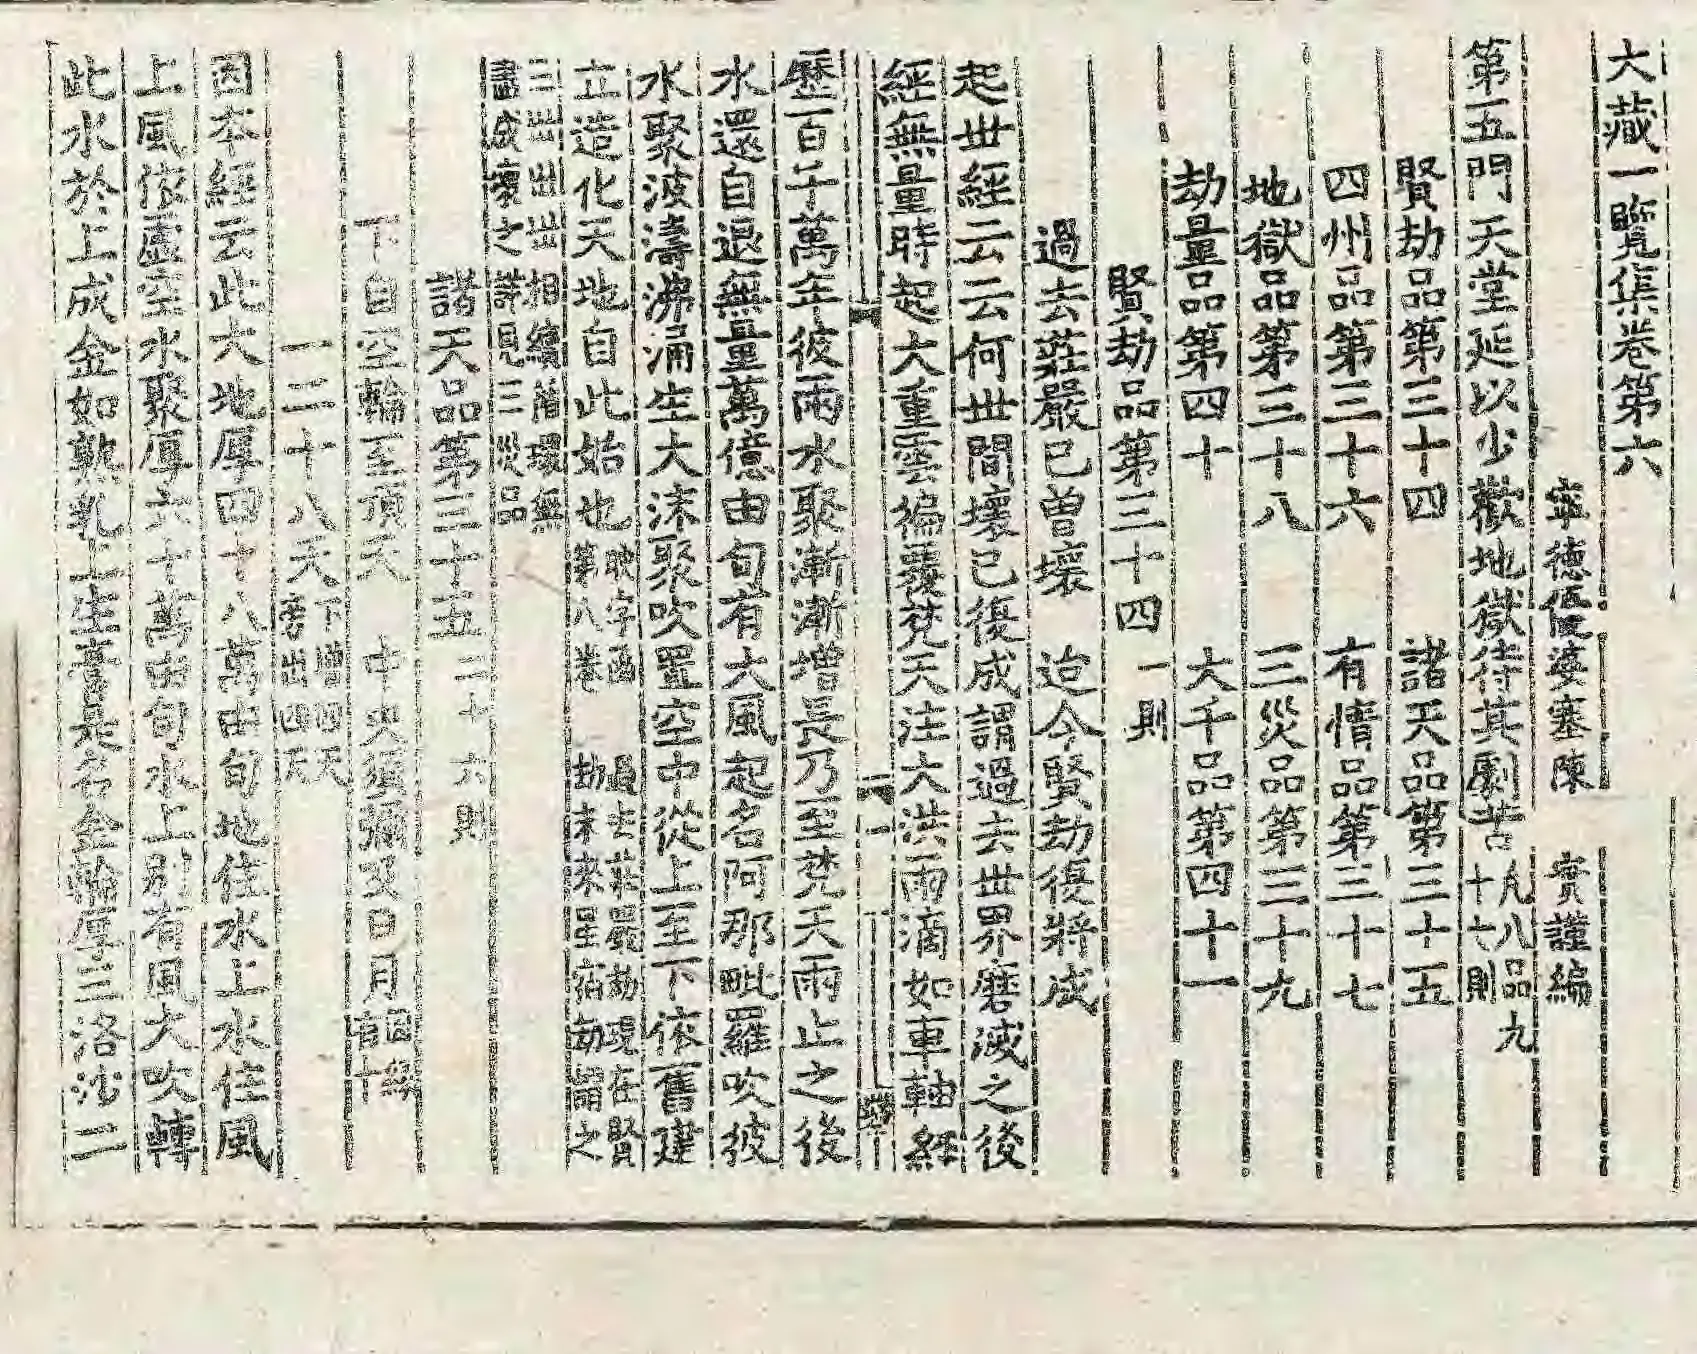 大藏一覽集卷第六
寧德優婆塞陳　實謹編
第五門天堂延以少歡地獄待其劇苦凡八品九十六則
賢劫品第三十四　諸天品第三十五
四州品第三十六　有情品第三十七
地獄品第三十八　三災品第三十九
劫量品第四十　大千品第四十一
賢劫品第三十四一則
過去莊嚴已曾壞　迨今賢劫復將成
起世經云云何世間壞已復成謂過去世界磨滅之後
經無量時起大重雲徧覆梵天注大洪雨滴如車軸經
歷百千萬年彼雨水聚漸漸增長乃至梵天雨止之後
水還自退無量萬億由旬有大風起名阿那毗羅吹彼
水聚波濤沸涌生大沫聚吹置空中從上至下依舊建
立造化天地自此始也映字函第八卷　過去莊嚴劫現在賢劫未來星宿劫謂之
三世出世相續循環無盡成壞之詳見三災品
諸天品第三十五二十六則
下自空輪至頂天　中央須彌及日月因緣有十
一二十八天下增四天旁出四天
因本經云此大地厚四十八萬由旬地住水上水住風
上風依虛空水聚厚六十萬由旬水上別有風大吹轉
此水於上成金如熟乳上生膏是名金輪厚三洛沙二